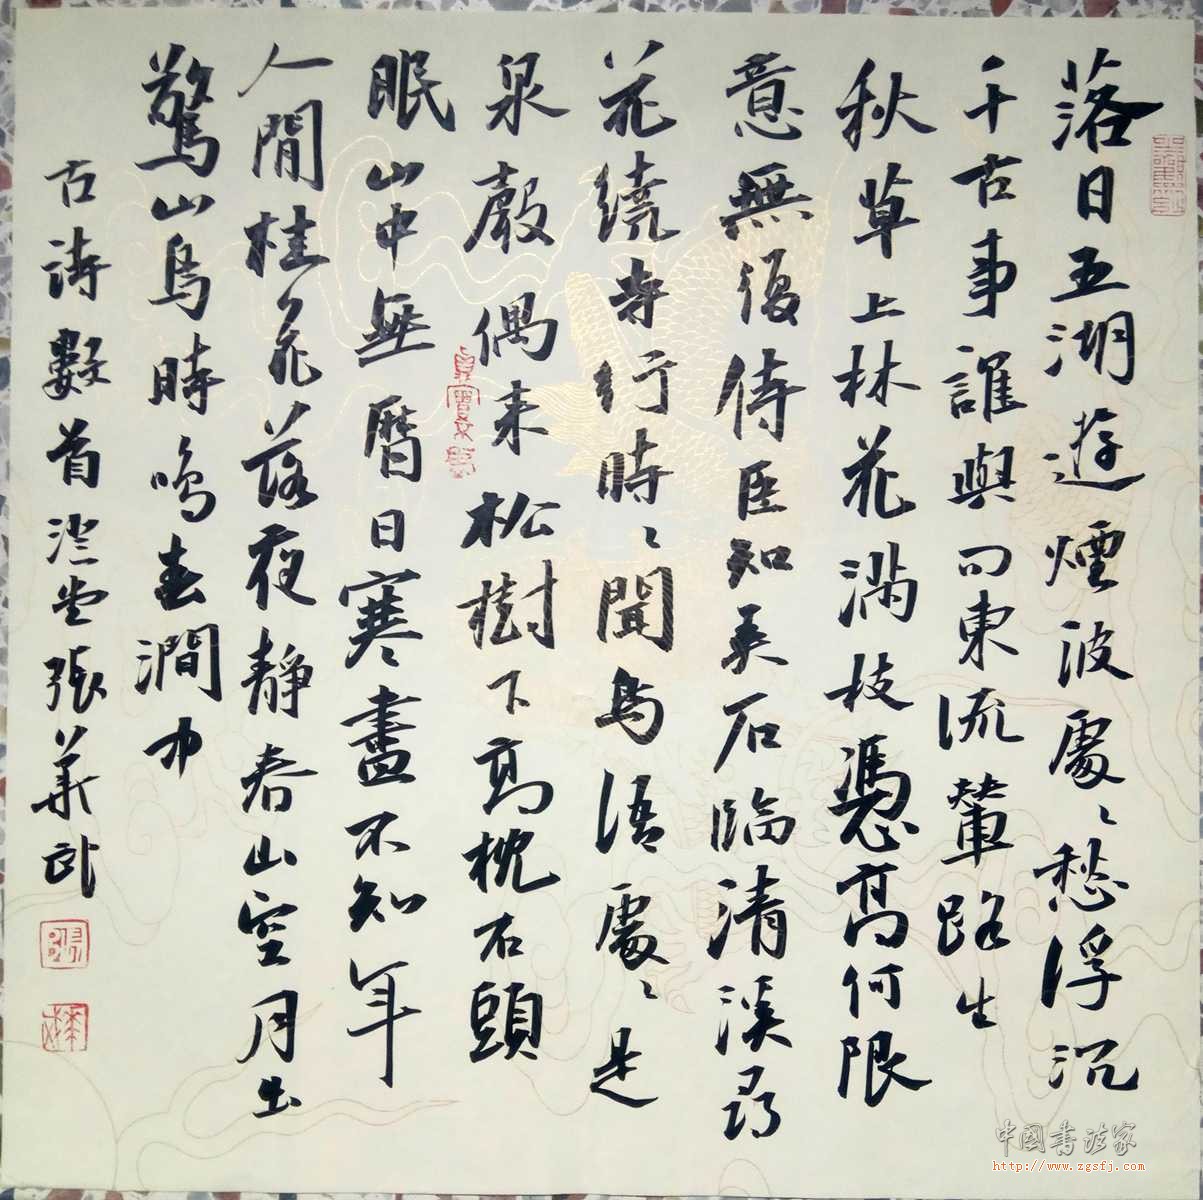 落日五湖遊煙波處〻愁浮沉
千古事誰與問東流輦路生
秋草上林花滿枝憑高何限
意無復侍臣知美石臨清溪尋
花繞寺行時〻聞鳥語處〻是
泉聲偶来松樹下高枕石頭
眠山中無曆日寒盡不知年
人閒桂花落夜靜春山空月出
驚山鳥時鳴春澗中
古詩數首 張華武
中國書法家
http://www.zgsfj.com